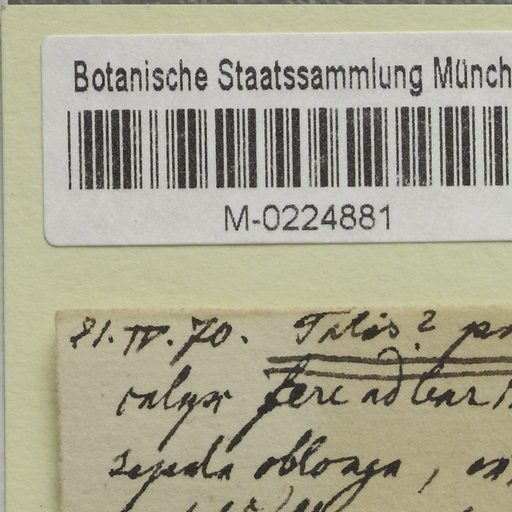 Botanische Staatssammlung Münch
M-0224881
81. IV. 70. Talis? pr
calyx fere ad bear
sepala oblonga,